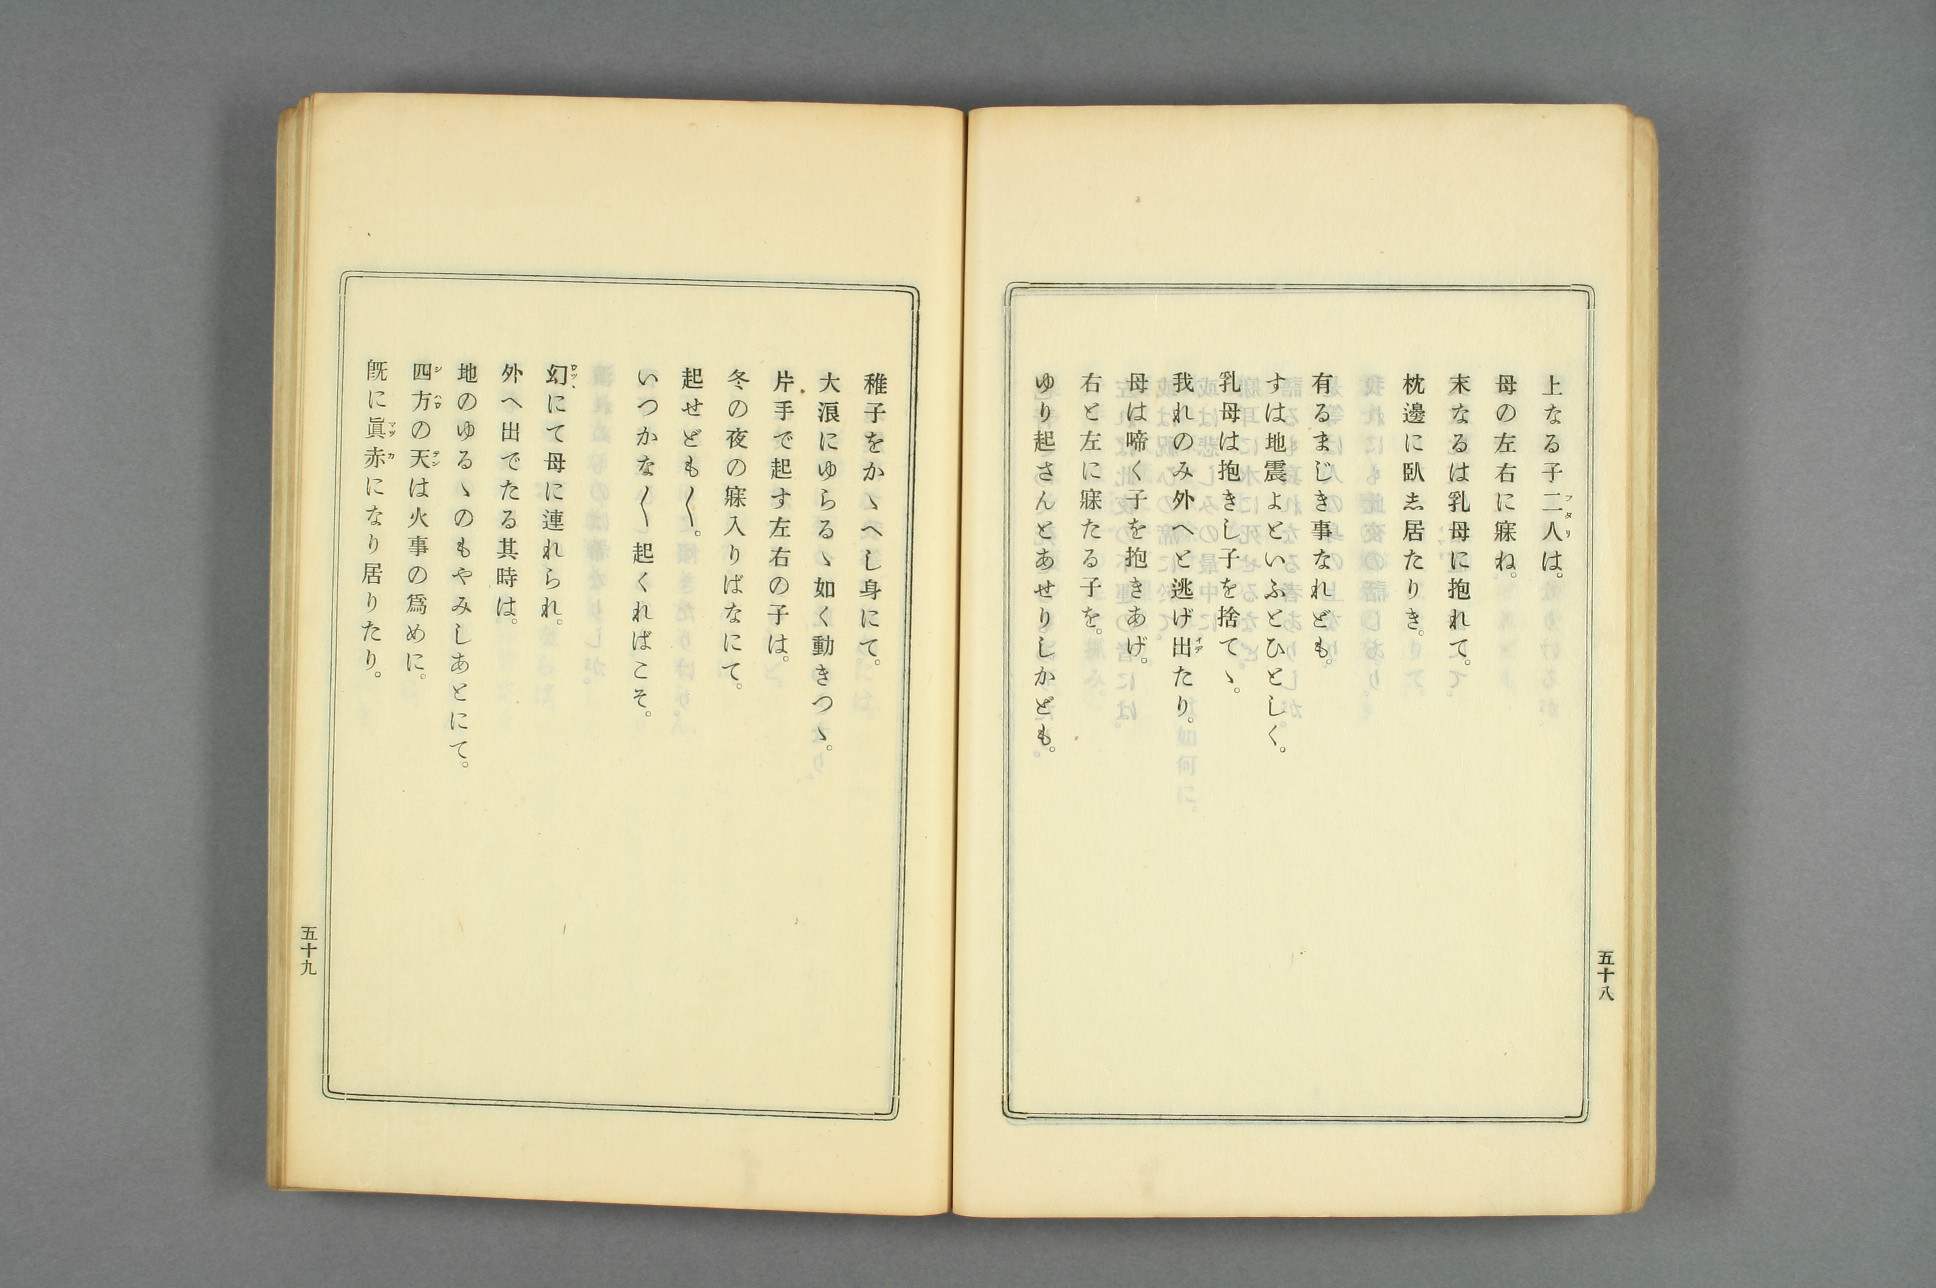 上なる子二人は。
母の左右に寐ね。
末なるは乳母に抱れて。
枕邊に臥志居たりき。
有るまじき事なれども。
すは地震よといふとひとしく。
乳母は抱きし子を捨てゝ。
我れのみ外へと逃げ出たり。
母は啼く子を抱きあげ。
右と左に寐たる子を。
ゆり起さんとあせりしかども。
五十八
稚子をかゝへし身にて。
大浪にゆらるゝ如く動きつゝ。
片手で起す左右の子は。
冬の夜の寐入りばなにて。
起せども〱。
いつかな〱起くればこそ。
幻にて母に連れられ。
外へ出でたる其時は。
地のゆるゝのもやみしあとにて。
四方の天は火事の爲めに。
既に眞赤になり居りたり。
五十九